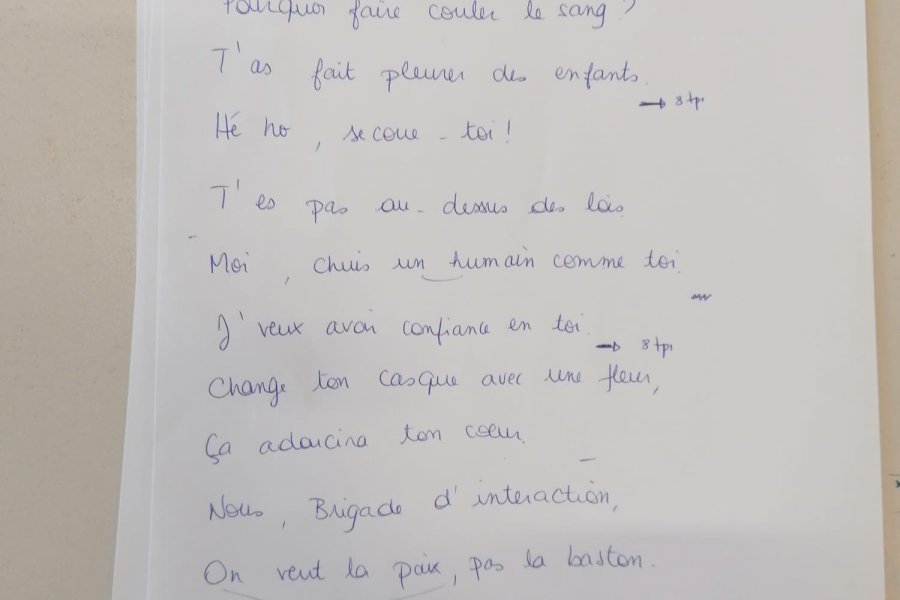 Pourquoi faire couler le sang ?
T'as fait pleurer des enfants.
→ 8 tps
Hé ho, secoue-toi !
T'es pas au-dessus des lois.
Moi, chuis un humain comme toi.
J'veux avoir confiance en toi.
→ 8 tps
Change ton casque avec une fleur,
Ça adoucira ton coeur.
Nous, Brigade d'interaction,
On veut la paix, pas la baston.